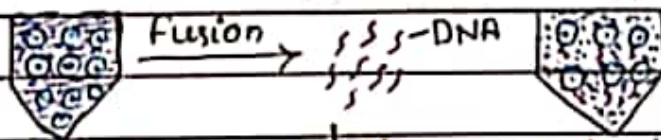 Fusion
DNA